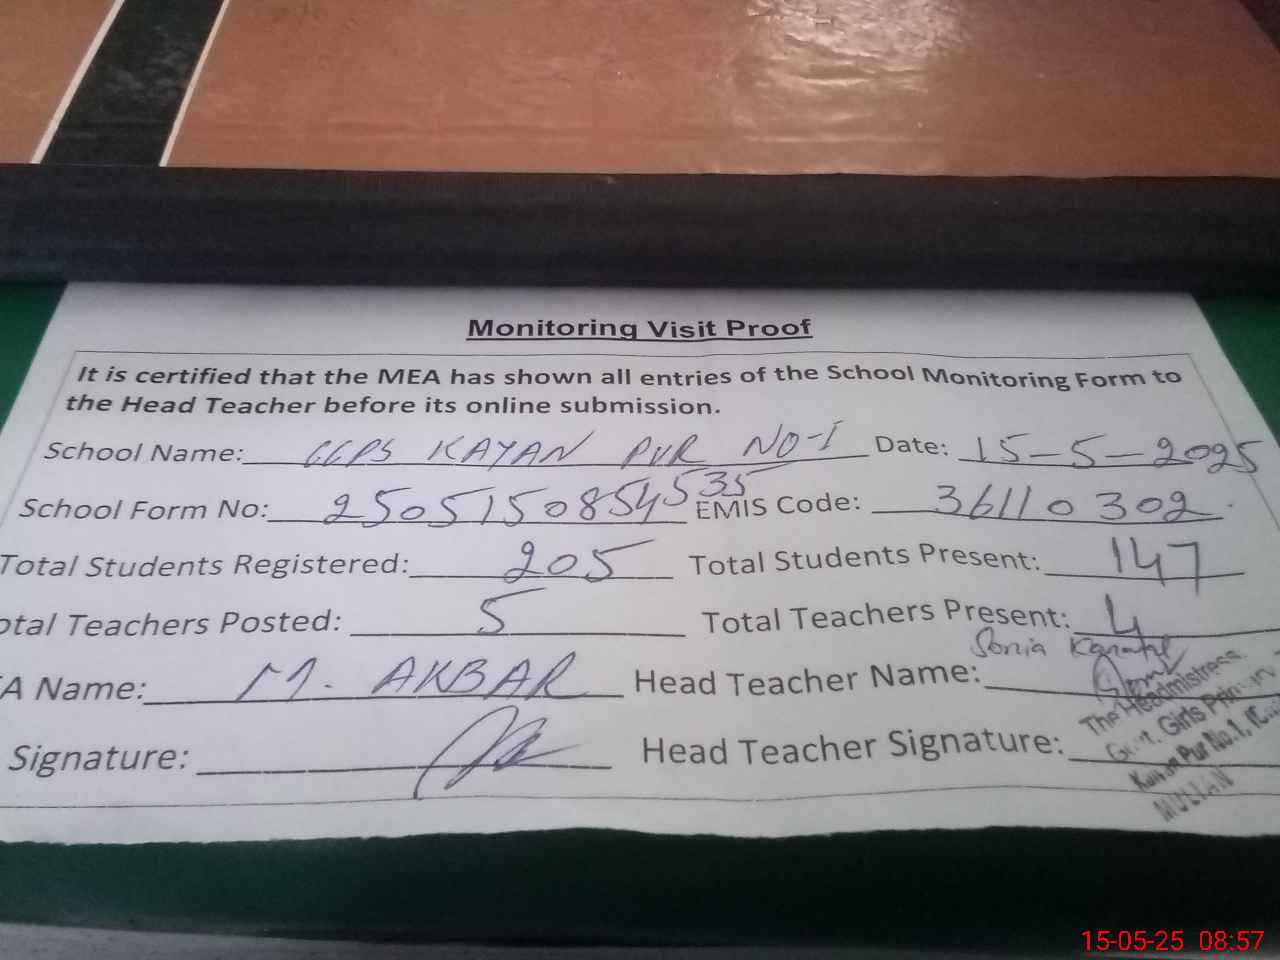 Monitoring Visit Proof
It is certified that the MEA has shown all entries of the School Monitoring Form to
the Head Teacher before its online submission.
School Name: GGPS KAYAN PUR NO-I Date: 15-5-2025
School Form No: 2505150854535 EMIS Code: 36110302
Total Students Registered: 205 Total Students Present: 147
otal Teachers Posted: 5 Total Teachers Present: 4
A Name: M. AKBAR Head Teacher Name: Sonia
Signature: Head Teacher Signature:
The Headmistress
Girls
Pur No.1,
MULTAN
15-05-25 08:57